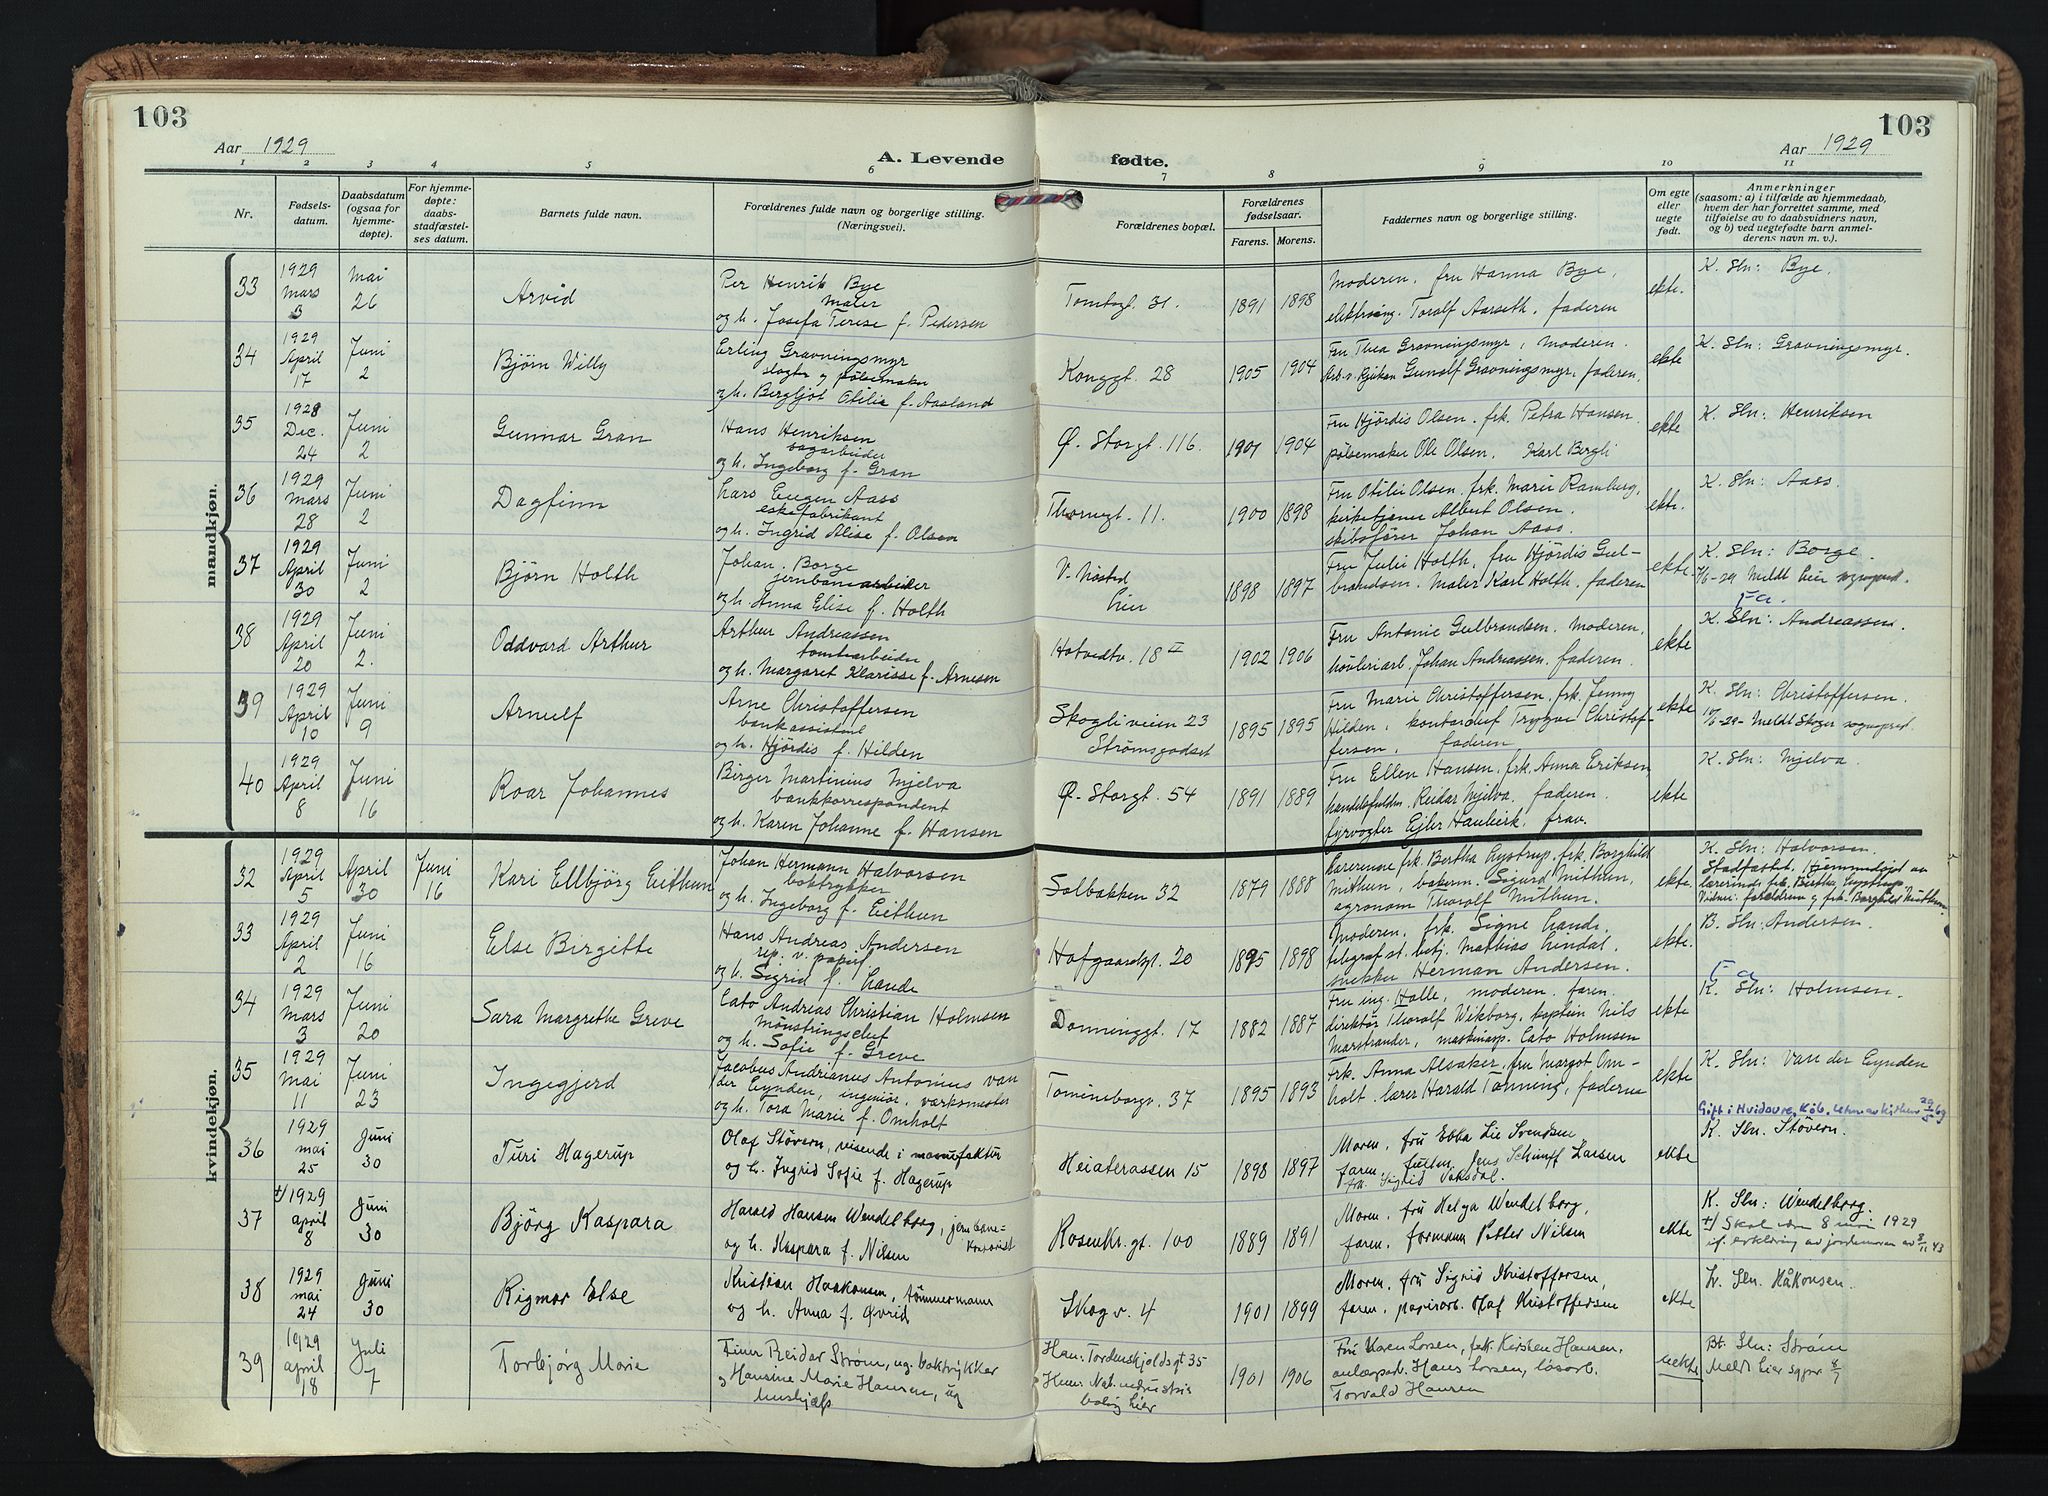 103
103
Aar 1929
A. Levende fødte.
Aar 1929
1 2 3 4 5 6 7 8 9 10 11
Nr.
Fødsels-
datum.
Daabsdatum
(ogsaa for
hjemme-
døpte).
For hjemme-
døpte:
daabs-
stadfæstel-
ses datum.
Barnets fulde navn.
Forældrenes fulde navn og borgerlige stilling.
(Næringsvei).
Forældrenes bopæl.
Forældrenes
fødselsaar.
Farens. Morens.
Faddernes navn og borgerlige stilling.
Om egte
eller
uegte
født.
Anmerkninger
(saasom: a) i tilfælde av hjemmedaab,
hvem der har forrettet samme, med
tilføielse av to daabsvidners navn,
og b) ved uegtefødte barn anmel-
derens navn m. v.).
mandkjøn.
33
1929
Mars
3
Mai
26
Arvid
Per Henrik Bye
maler
og h. Josefa Terese f. Pedersen
Tomtegt. 31.
1891 1898
Moderen, fru Hanna Bye,
elektroing. Toralf Aarseth, faderen
ekte.
K. Sln: Bye.
34
1929
April
17
Juni
2
Bjørn Willy
Erling Gravningsmyr
slagter og pølsemaker
og h. Bergljot Otilie f. Aasland
Konggt. 28
1905 1904
Fru Thea Gravningsmyr, moderen.
Arb. v. Rjukan Gunulf Gravningsmyr, faderen.
ekte
K. Sln: Gravningsmyr.
35
1928
Dec.
24
Juni
2
Gunnar Gran
Hans Henriksen
sagarbeider
og h. Ingeborg f. Gran
Ø. Storgt. 116.
1901 1904
Fru Hjördis Olsen. frk. Petra Hansen
pølsemaker Ole Olsen. Karl Bergli
ekte
K. Sln: Henriksen
36
1929
Mars
28
Juni
2
Dagfinn
Lars Eugen Aass
eskefabrikant
og h. Ingrid Alise f. Olsen
Thornegt. 11.
1900 1898
Fru Otilie Olsen. frk. Marie Ramberg,
kirketjener Albert Olsen.
skibsfører Johan Aass.
ekte.
K. Sln: Aass.
37
1929
April
30
Juni
2
Bjørn Holth
Johan Borge
jernbanearbeider
og h. Anna Elise f. Holth
V. Nøsted
Lier
1898 1897
Fru Julie Holth, fru Hjördis Gul-
brandsen. Maler Karl Holth, faderen
ekte.
K. Sln: Borge.
7/6-29 Meldt Lier sogneprest.
Fa.
38
1929
April
20
Juni
2.
Oddvard Arthur
Arthur Andreassen
tomtearbeider
og h. Margaret Klarisse f. Arnesen
Hotvedtv. 18 II
1902 1906
Fru Antonie Gulbrandsen. Moderen,
høvleriarb. Johan Andreassen. faderen.
ekte
K. Sln: Andreassen.
39
1929
April
10
Juni
9
Arnulf
Arne Christoffersen
bankassistent
og h. Hjördis f. Hilden
Skogliveien 23
Strømsgodset
1895 1895
Fru Marie Christoffersen. frk. Jenny
Hilden, kontorchef Trygve Christof-
fersen, faderen
ekte
K. Sln: Christoffersen.
10/6-29- Meldt Skoger sogneprest.
40
1929
April
8
Juni
16
Roar Johannes
Birger Martinius Mjelva
bankkorrespondent
og h. Karen Johanne f. Hansen
Ø. Storgt. 54
1891 1889
Fru Ellen Hansen, frk. Anna Eriksen
handelsfuldm. Reidar Mjelva, faderen.
fyrvogter Ejler Haubirk. frav.
ekte
K. Sln: Mjelva.
kvindekjøn.
32
1929
April
5
April
30
Juni
16
Kari Ellbjörg Eithun
Johan Hermann Halvorsen
boktrykker
og h. Ingeborg f. Eithun
Solbakken 32
1879 1888
Lærerinne frk. Bertha Lystrup, frk. Borghild
Mithun, bokerm. Sigurd Mithun,
agronom Thorolf Mithun.
ekte.
K. Sln: Halvorsen.
Stadfæstet. Hjemmedøpt av
lærerinde frk. Bertha Lystrup.
Vidner: forældrene og frk. Borghild Mithun.
33
1929
April
2
Juni
16
Else Birgitte
Hans Andreas Andersen
rep. v. papirf.
og h. Sigrid f. Lande
Hofgaardgt. 20
1895 1898
Moderen, frk. Signe Lande,
telegraf st. betj. Mathias Lindal.
snekker Herman Andersen.
ekte.
B. Sln: Andersen.
Fa
34
1929
Mars
3
Juni
20
Sara Margrethe Greve
Cato Andreas Christian Holmsen
Mønstringschef
og h. Sofie f. Greve
Dønninggt. 17
1882 1887
Fru ing. Halle, moderen. faren.
direktør Thorolf Wikborg, kaptein Nils
Marstrander, maskinasp. Cato Holmsen
ekte
K. Sln: Holmsen.
35
1929
Mai
11
Juni
23
Ingegjerd
Jacobus Andrianus Antonius van
der Eynden, ingeniør, værksmester
og h. Tora Marie f. Omholt
Tomineborgv. 37
1895 1893
Frk. Anna Alsaker, fru Margot Om-
holt. lærer Harald Tønning, faderne
ekte
K. Sln: Van der Eynden
Gift i Hvidovre, Köb. 29/5 69
36
1929
mai
25
Juni
30
Turi Hagerup
Olaf Støvern, reisende i manufaktur
og h. Ingrid Sofie f. Hagerup
Heiaterassen 15
1898 1897
Moren, fru Ebba Lie Svendsen
faren, Jens Schinff Larsen
frk. Sigrid Voksdal.
ekte
K. Sln. Støvern.
37
+) 1929
april
8
Juni
30
Björg Kaspara
Harald Hansen Wendelborg, jernbane-
kontorist
og h. Kaspara f. Nilsen
Rosenkr. gt. 100
1889 1891
Moren, fru Helga Wendelborg,
faren, formann Petter Nilsen
ekte
K. Sln: Wendelborg.
+) Skal være 8 mai 1929
if. erklæring av jordmoren av 8/11 43
38
1929
mai
24
Juni
30
Rigmor Else
Kristian Haakonsen, tømmermann
og h. Anna f. Øvrid
Skog v. 4
1901 1899
Moren, fru Sigrid Kristoffersen,
faren, papirarb. Olaf Kristoffersen
ekte
K. Sln. Håkonsen.
39
1929
april
18
Juli
7
Torbjørg Marie
Finn Reidar Strøm, ug. boktrykker
og Hansine Marie Hansen, ug
hushjelp
Han: Tordenskjoldsgt 35
Hun: Nat. industris
bolig Lier
1901 1906
Fru Karen Larsen, frk. Kirsten Hansen,
anlægsarb. Hans Larsen, løsarb.
Torvald Hansen
uekte
Bt. Sln: Strøm
Meldt Lier sgpr 8/7